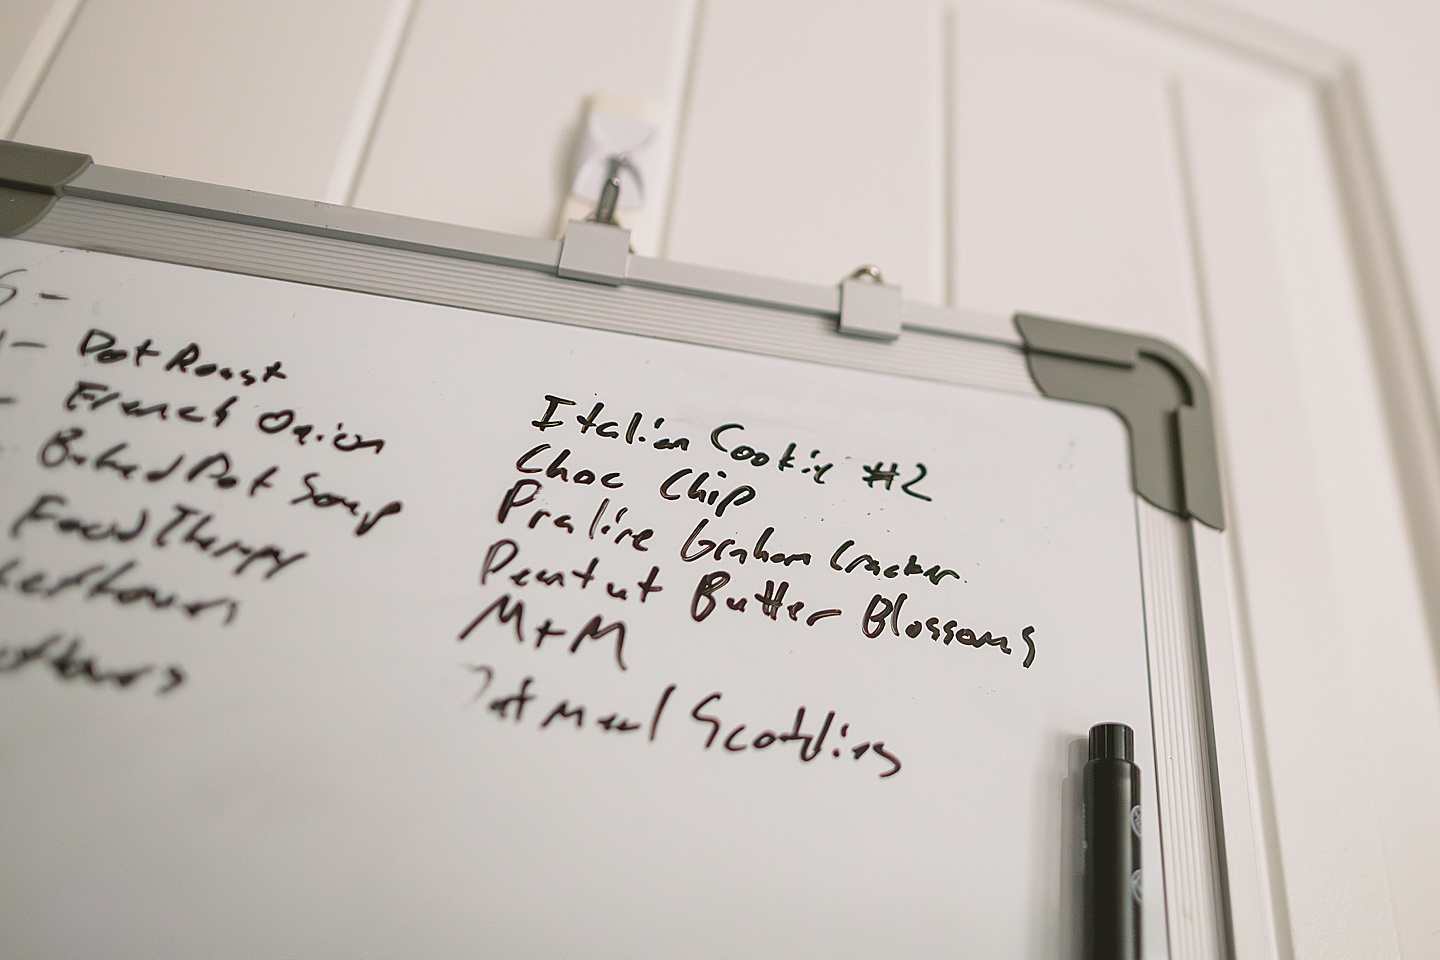 S -
- Pot Roast
- French Onion
- Baked Pot Soup
Food Therapy
Leftovers
Leftovers
Italian Cookie #2
Choc Chip
Praline Graham Cracker
Peantut Butter Blossoms
M+M
Oatmeal Scotties